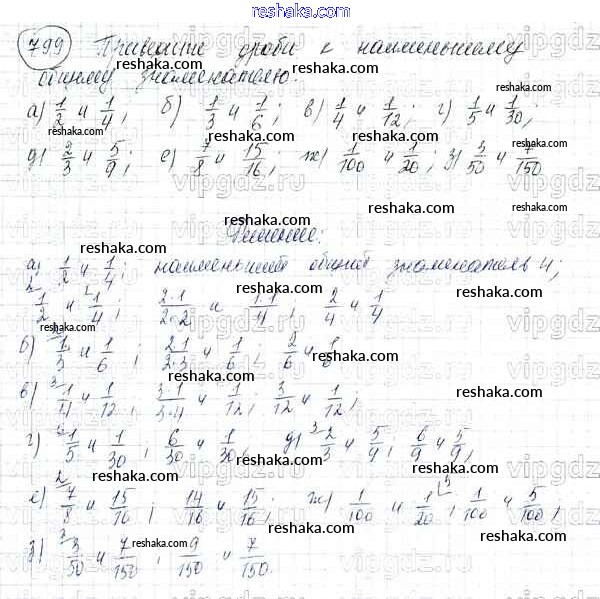 reshaka.com
799 Привести дроби к наименьшему
общему знаменателю:
а) 1/2 и 1/4; б) 1/3 и 1/6; в) 1/4 и 1/12; г) 1/5 и 1/30;
д) 2/3 и 5/9; е) 7/8 и 15/16; ж) 1/100 и 1/20; з) 3/50 и 7/150
Решение:
а) 1/2 и 1/4; наименьший общий знаменатель 4;
1/2 и 1/4; 2·1/2·2 и 1·1/4; 2/4 и 1/4
б) 1/3 и 1/6; 2·1/2·3 и 1/6; 2/6 и 1/6
в) 1/4 и 1/12; 3·1/3·4 и 1/12; 3/12 и 1/12;
г) 1/5 и 1/30; 6/30 и 1/30; д) 2/3 и 5/9; 6/9 и 5/9;
е) 7/8 и 15/16; 14/16 и 15/16; ж) 1/100 и 1/20; 1/100 и 5/100;
з) 3/50 и 7/150; 9/150 и 7/150.